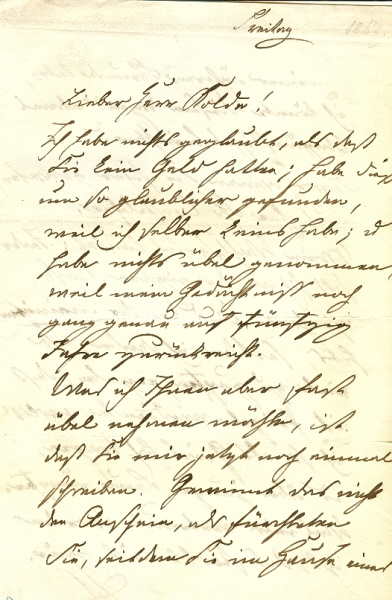 Freitag
Lieber Herr Kolda!
Ich habe nichts geglaubt, als daß
Sie kein Geld hatten; habe dieß
um so glaublicher gefunden,
weil ich selber keins habe;
habe nichts übel genommen,
weil mein Gedächtniß noch
ganz genau auf fünfzig
Jahre zurückreicht.
Was ich Ihnen aber fast
übel nehmen möchte, ist
daß Sie mir jetzt noch einmal
schreiben. Gewinnt das nicht
den Anschein, als fürchteten
Sie, seitdem Sie im Hause einer